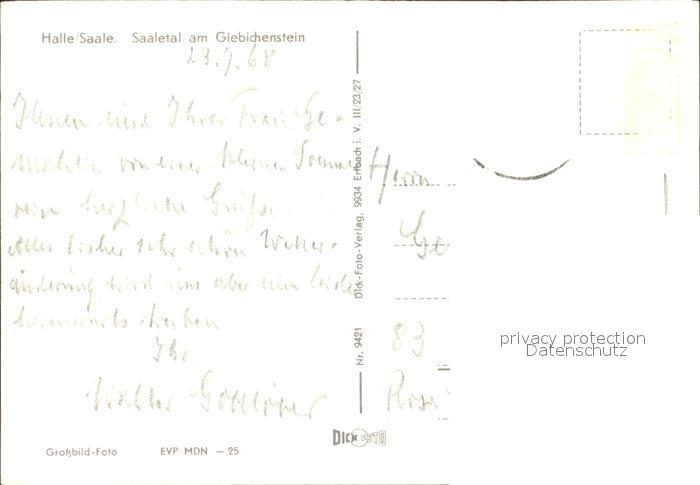 Halle/Saale. Saaletal am Giebichenstein
23.7.68
Ihnen und Ihrer Frau Ge-
mahlin von einer kleinen Sommer
reise herzliche Grüße.
Alles bisher sehr schön Wetter-
änderung wird uns aber nun leider
heimwärts treiben
Ihr
Walter
Großbild-Foto EVP MDN —.25
Nr. 9421 Dick-Foto-Verlag, 9934 Erlbach i. V. III/23/27
DICK FOTO
Herrn
Ge
83
Rosa
privacy protection
Datenschutz